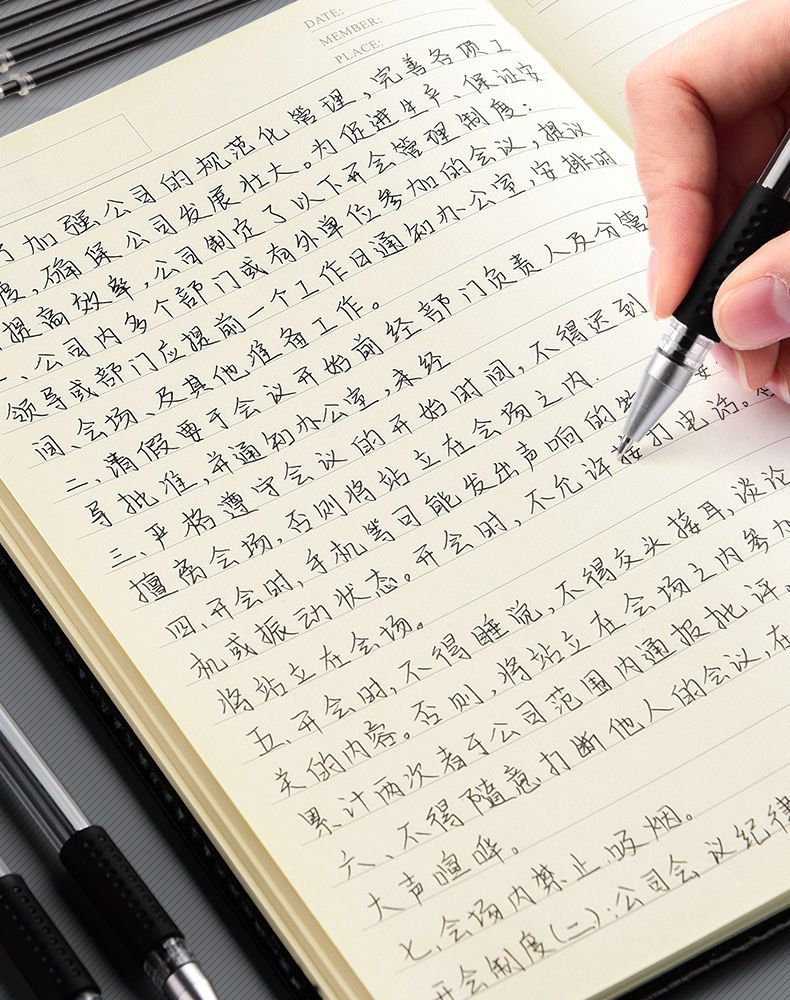 DATE:
MEMBER:
PLACE:
加强公司的规范化管理,完善各项工
度,确保公司发展壮大。为促进生产、保证安
提高效率,公司制定了以下开会管理制度:
一、公司内各个部门或有外单位参加的会议,提议
领导或部门应提前一个工作日通知办公室,安排时
间、会场、及其他准备工作。
二、请假要于会议开始前经部门负责人及分管
导批准,并通知办公室,未经
三、严格遵守会议的开始时间,不得迟到
擅离会场,否则将站立在会场之内.
四、开会时,手机等可能发出声响的
机或振动状态。开会时,不允许接打电话。
将站立在会场。
五、开会时,不得睡觉,不得交头接耳,谈论
关的内容。否则,将站立在会场之内参加
累计两次者于公司范围内通报批评。
六、不得随意打断他人的会议,在
大声喧哗。
七、会场内禁止吸烟。
开会制度(二):公司会议纪律